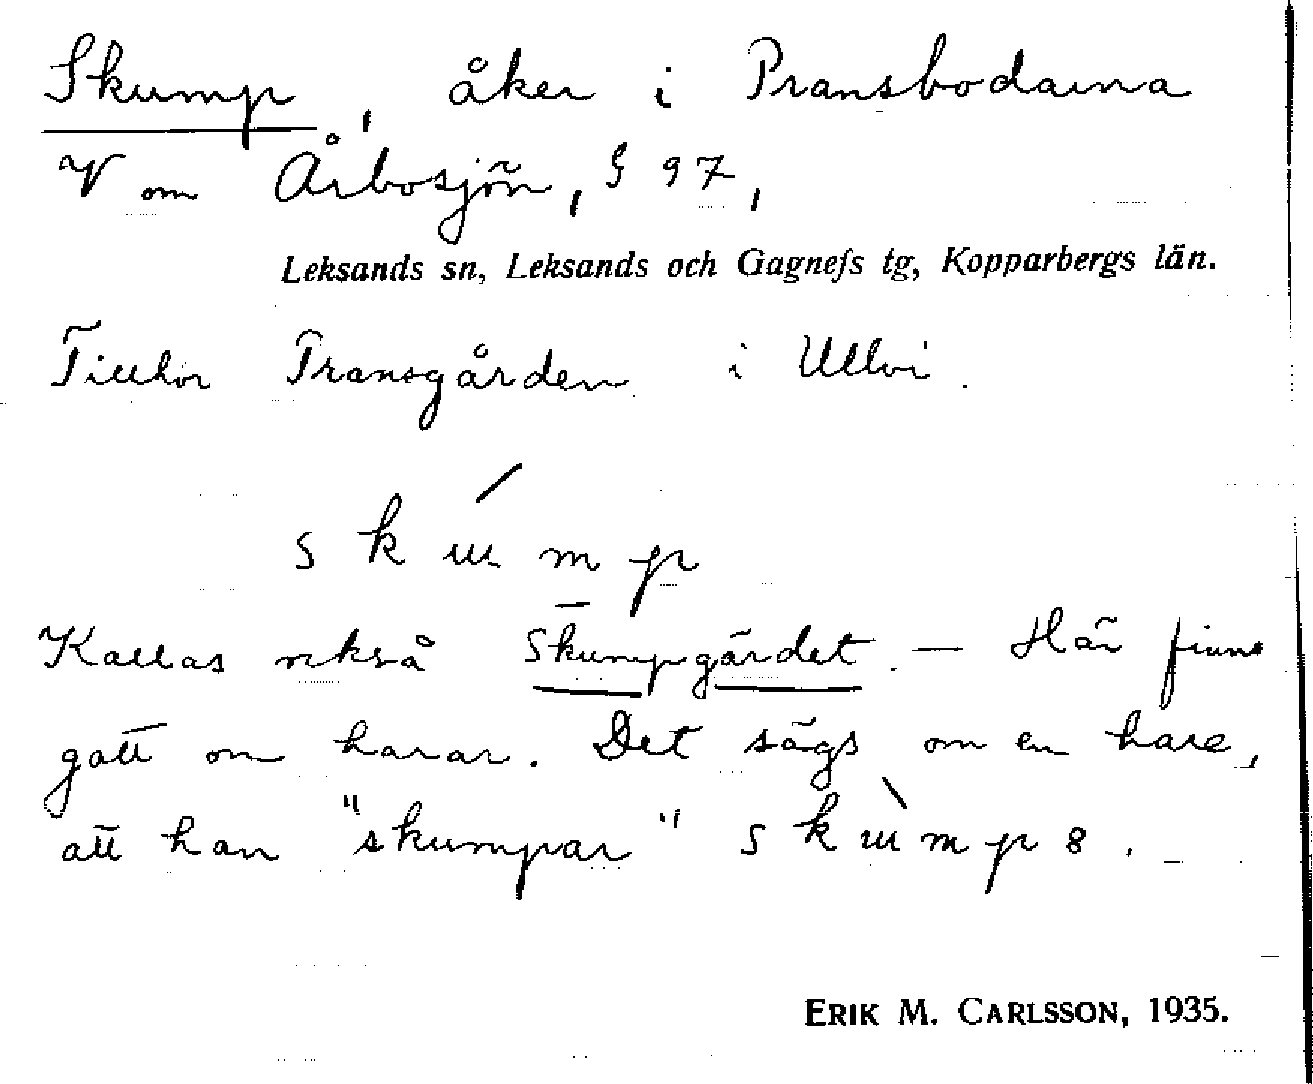 Skump, åker i Pransbodarna
V om Årbosjön, § 97,
Leksands sn, Leksands och Gagnefs tg, Kopparbergs län.
Tillhör Pransgården i Ullvi.
skúmp
Kallas också Skumpgärdet. — Här finns
gott om harar. Det sägs om en hare,
att han "skumpar" skùmp8.
ERIK M. CARLSSON, 1935.